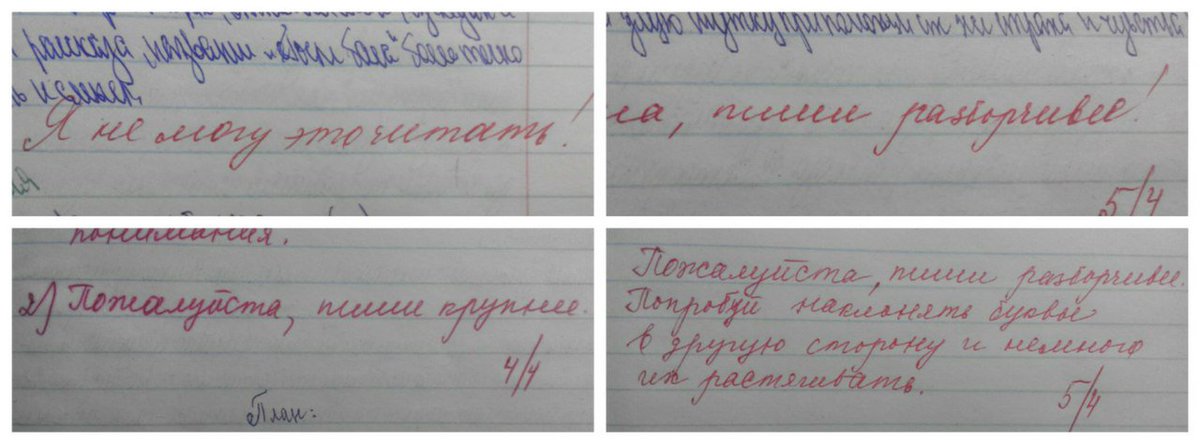 рассказа, название
Я не могу это читать!
пиши разборчивее!
5/4
понимания.
2) Пожалуйста, пиши крупнее.
4/4
План:
Пожалуйста, пиши разборчивее.
Попробуй наклонять буквы
в другую сторону и немного
их растягивать.
5/4